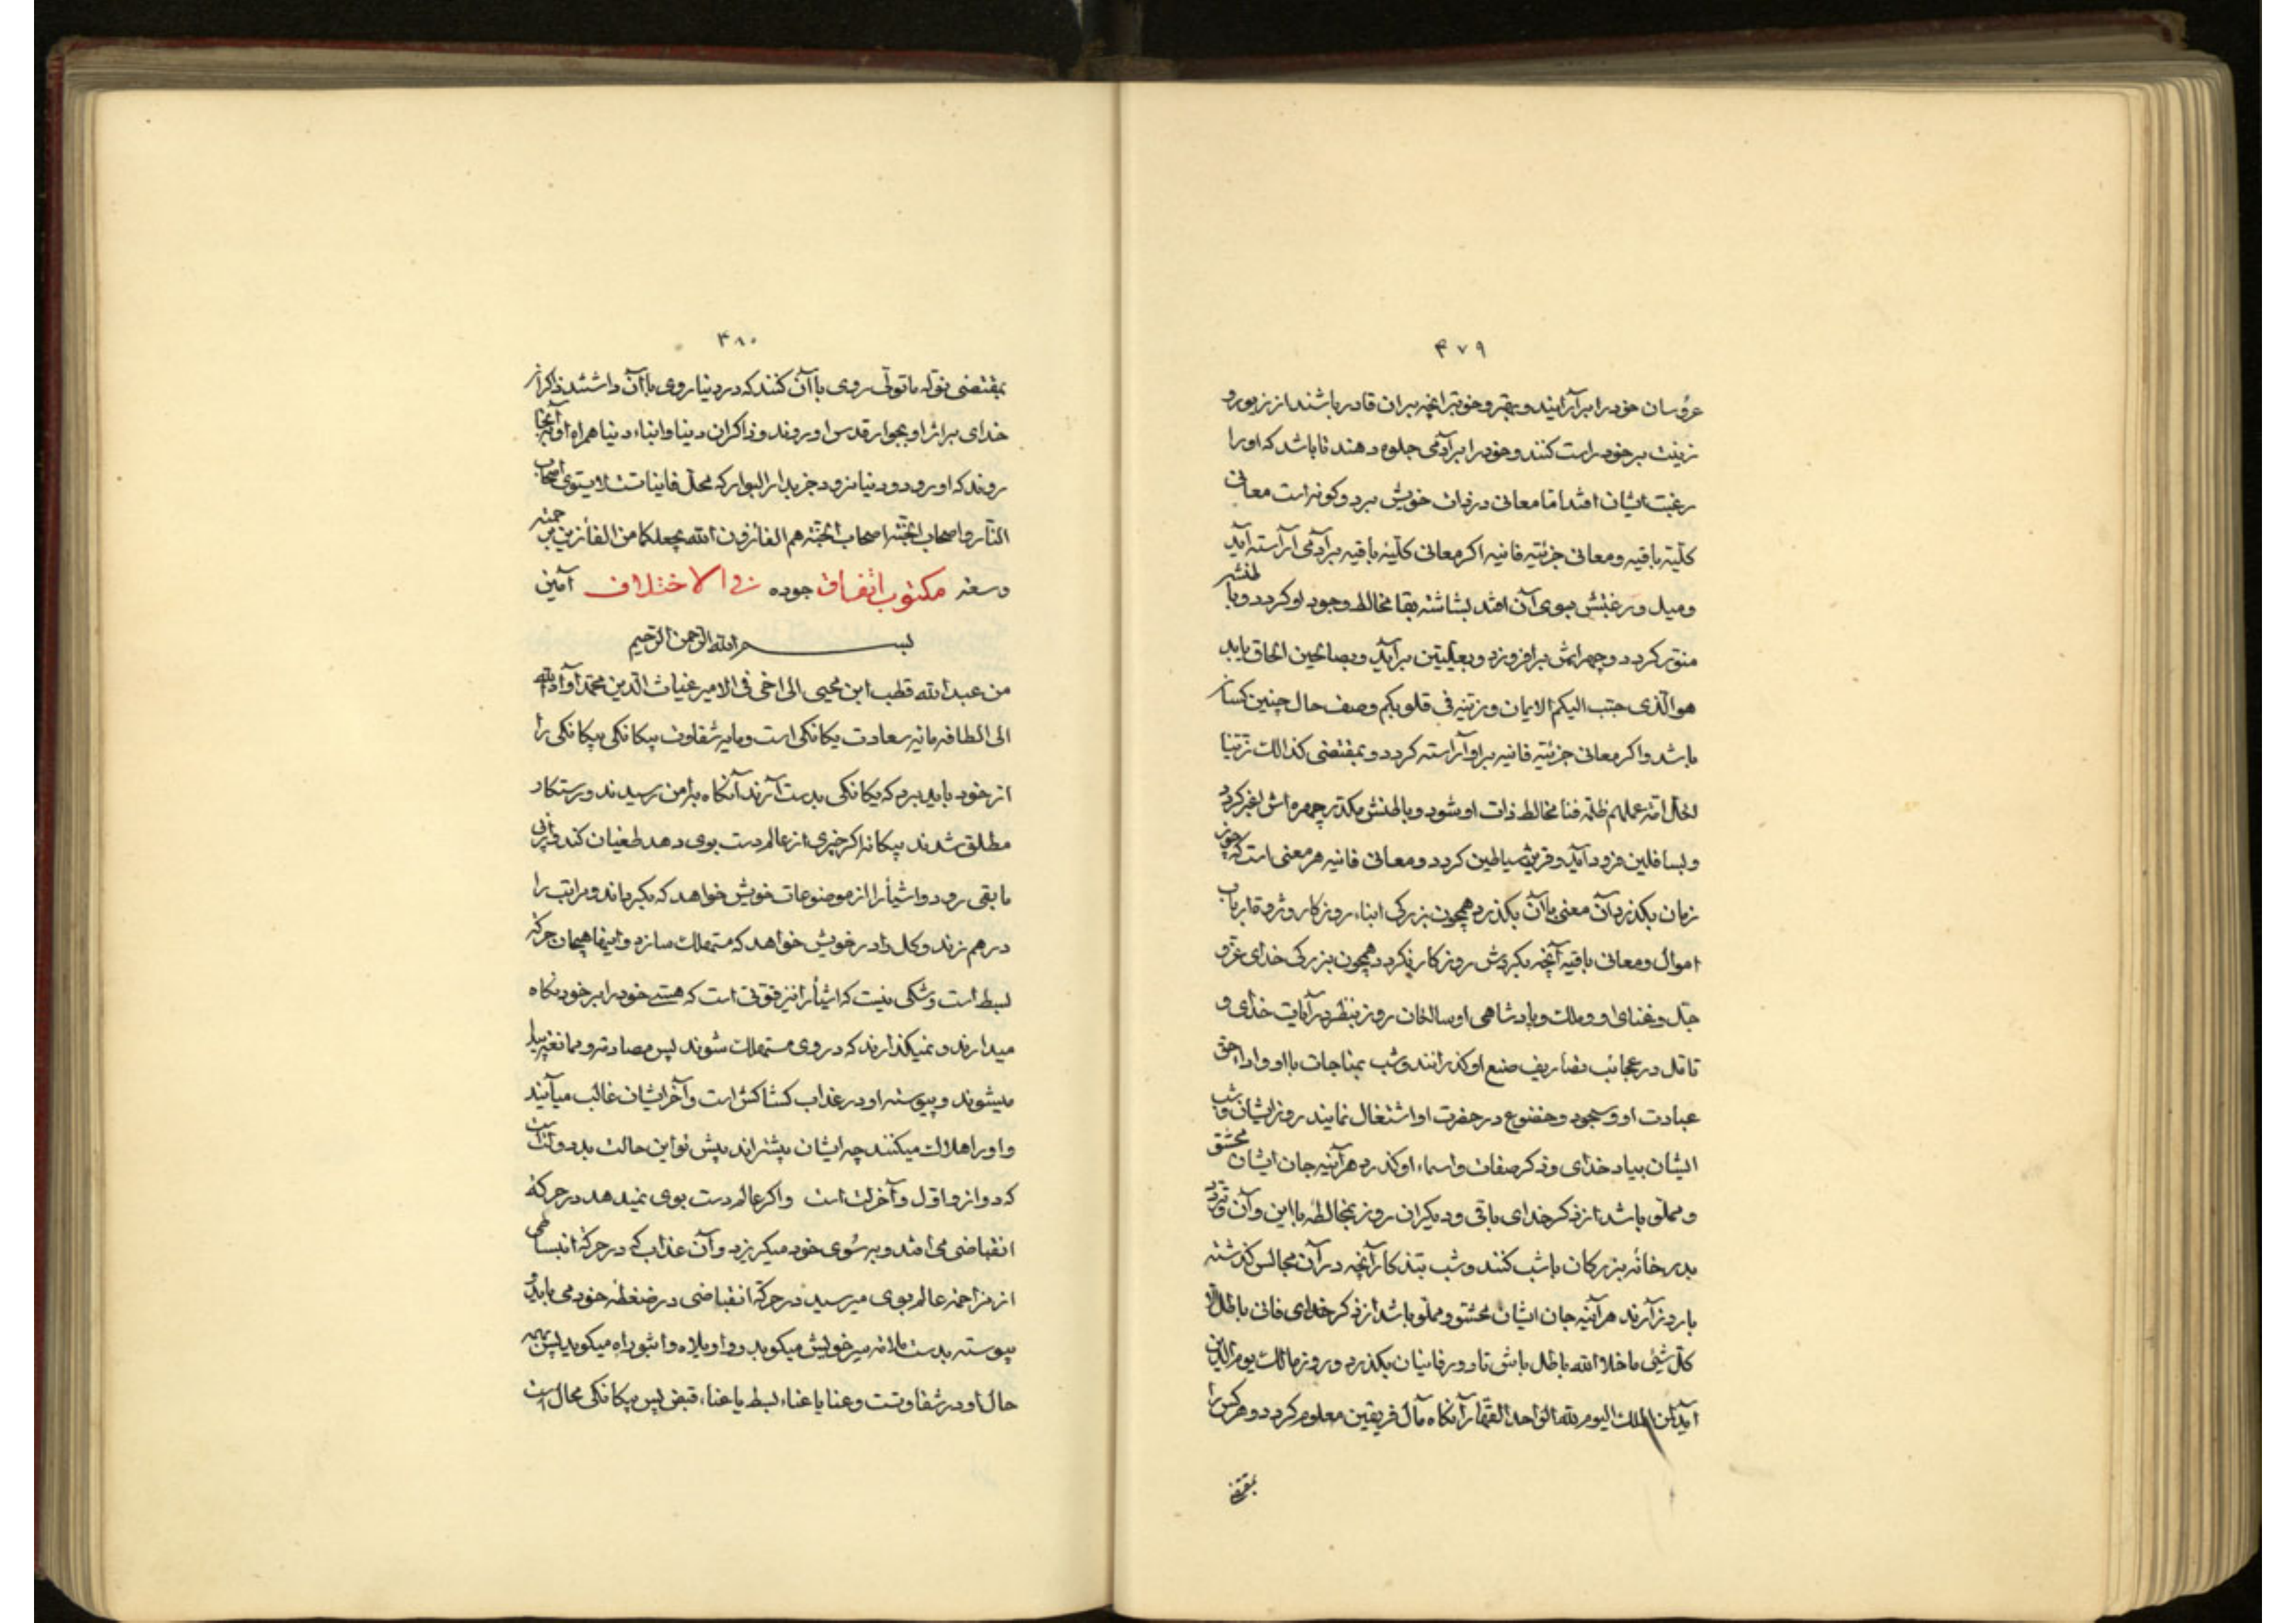 ۳۷۹
عروسان خود را برآرایند و بهتر و خوبتر آنچه بر آن قادر باشند از زیور و
زینت بر خود راست کنند و خود را بر آدمی جلوه دهند تا باشد که او را
رغبت ایشان افتد اما معانی در ذات خویش بر دو گونه است معانی
کلیه باقیه و معانی جزئیه فانیه اگر معانی کلیه باقیه بر آدمی آراسته آید
و میل و رغبتش بسوی آن افتد بشاشته بقا مخالط وجود او گردد و باطنش
منور گردد و چهره‌اش برافروزد و بعلیین برآید و بصالحین الحاق یابد
هو الذی حبب الیکم الایمان و زینه فی قلوبکم وصف حال چنین کسان
باشد و اگر معانی جزئیه فانیه بر او آراسته گردد و بمقتضی کذالک زینا
لکل امة عملهم ظلمه فنا مخالط ذات او شود و باطنش مکدر چهره‌اش اغبر گردد
و بسافلین فرود آید و قرین شیاطین گردد و معانی فانیه هر معنی است که چون
زمان بگذرد آن معنی با آن بگذرد همچون بزرگی ابناء روزگار و ثروة ارباب
اموال و معانی باقیه آنچه بگردش روزگار نگردد همچون بزرگی خدای عز و
جل و غنای او و ملک و پادشاهی او سالخان روز بنظر در آیات خدای و
تأمل در عجائب تصاریف صنع او گذرانند و شب بمناجات با او و اداء حق
عبادت او و سجود و خضوع در حضرت او اشتغال نمایند روز ایشان و شب
ایشان بیاد خدای و ذکر صفات و اسماء او گذرد هر آینه جان ایشان محشو
و مملو باشد از ذکر خدای باقی و دیگران روز بمخالطه با این و آن و تردد
بدر خانه بزرگان با شب کنند و شب بتذکار آنچه در آن مجالس گذشته
با روز آرند هر آینه جان ایشان محشو و مملو باشد از ذکر خدای فانی باطل الا
کل شیئ ما خلا الله باطل باش تا دور فانیان بگذرد و روز مالک یوم الدین
آید لمن الملک الیوم لله الواحد القهار آنگاه مآل فریقین معلوم گردد و هر کس را
بمقتضی
۳۸۰
بمقتضی نوله ما تولی روی با آن کنند که در دنیا روی با آن داشتند ذاکران
خدای بر اثر او بجوار قدس او روند و ذاکران دنیا و ابناء دنیا همراه او به آنجا
روند که او رود و دنیا نرود جز بدار البوار که محل فانیاتست لا یستوی اصحاب
النار و اصحاب الجنة اصحاب الجنة هم الفائزون الله یجعلکما من الفائزین برحمته
و سعة مکتوب اتفاق جوده نی الاختلاف آمین
بسم الله الرحمن الرحیم
من عبد الله قطب ابن محیی الی اخی فی الامیر غیاث الدین محمد آواه الله
الی الطافه مایه سعادت یگانگی است و مایه شقاوت بیگانگی بیگانگی را
از خود باید برد که یگانگی بدست آرند آنگاه بامن رسیدند و رستگار
مطلق شدند بیگانه اگر خیری از عالم دست بوی دهد طغیان کند و از پی
ما بقی رود و اشیا را از موضوعات خویش خواهد که بگرداند و مراتب را
در هم زند و کل را در خویش خواهد که مستهلک سازد و اینها هیجان حرکه
بسط است و شکی نیست که اشیا را نیز قوتی است که هستی خود را بر خود نگاه
میدارند و نمیگذارند که در وی مستهلک شوند پس مصادره و ممانعه پیدا
میشوند و پیوسته او در عذاب کشاکش است و آخر ایشان غالب میآیند
و او را هلاک میکنند چه ایشان بیشتراند بیش نواین حالت بد دو است
که دو از و اول و آخر است و اگر عالم دست بوی نمیدهد در حرکه
انقباضی می افتد و به سوی خود میگریزد و آن عذاب که در حرکه انبساطی
از مزاحمه عالم بوی میرسید در حرکه انقباضی در ضغطه خود می یابد و
پیوسته بدست ملامه سر خویش میکوبد و وا ویلاه و اثبوراه میگوید پس همه
حال او در شقاوتست و عنا یا عناء بسط یا عناء قبض پس بیگانگی محال است